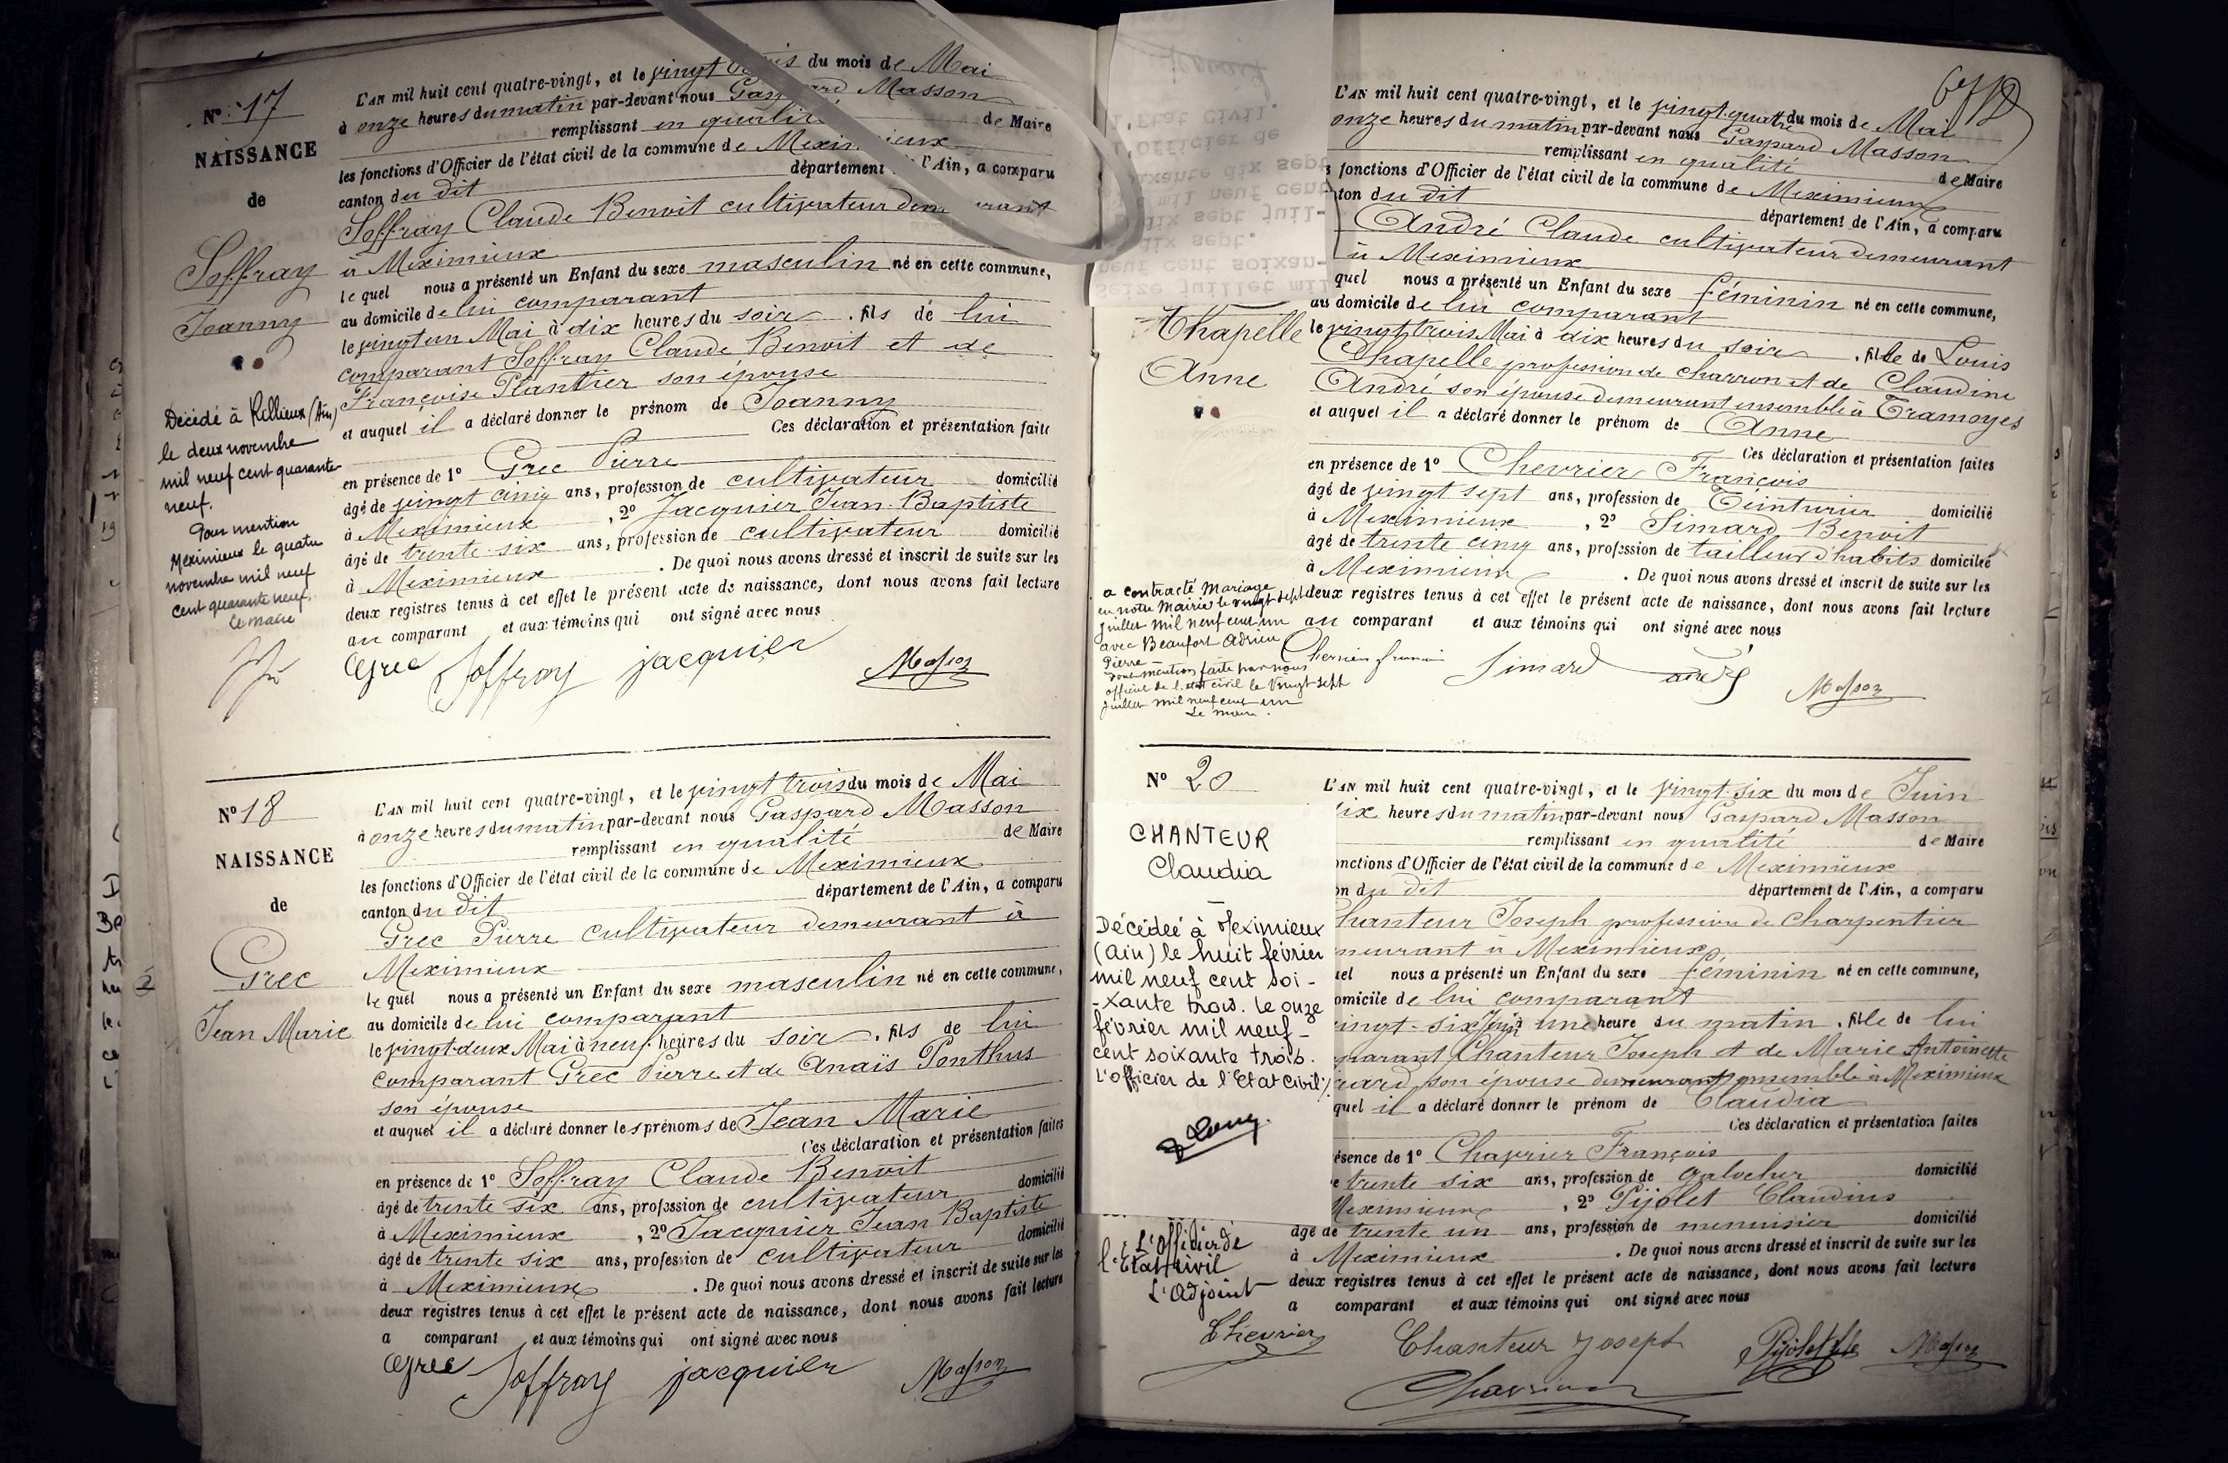 N° 17
NAISSANCE
de
Joffray
Joanny
Décédé à Rillieux (Ain)
le deux novembre
mil neuf cent quarante
neuf.
Pour mention
Meximieux le quatre
novembre mil neuf
cent quarante neuf.
Le maire
L'AN mil huit cent quatre-vingt, et le vingt trois du mois de Mai
à onze heures du matin par-devant nous Gaspard Masson
remplissant en qualité de Maire
les fonctions d'Officier de l'état civil de la commune de Meximieux
canton du dit département de l'Ain, a comparu
Joffray Claude Benoit cultivateur demeurant
à Meximieux
lequel nous a présenté un Enfant du sexe masculin né en cette commune,
au domicile de lui comparant
le vingt un Mai à dix heures du soir . fils de lui
comparant Joffray Claude Benoit et de
Françoise Plantier son épouse
et auquel il a déclaré donner le prénom de Joanny
Ces déclaration et présentation faites
en présence de 1° Grec Pierre
âgé de vingt cinq ans, profession de cultivateur domicilié
à Meximieux , 2° Jacquier Jean Baptiste
âgé de trente six ans, profession de cultivateur domicilié
à Meximieux . De quoi nous avons dressé et inscrit de suite sur les
deux registres tenus à cet effet le présent acte de naissance, dont nous avons fait lecture
au comparant et aux témoins qui ont signé avec nous
Grec Joffray jacquier Masson
N° 18
NAISSANCE
de
Grec
Jean Marie
L'AN mil huit cent quatre-vingt, et le vingt trois du mois de Mai
à onze heures du matin par-devant nous Gaspard Masson
remplissant en qualité de Maire
les fonctions d'Officier de l'état civil de la commune de Meximieux
canton du dit département de l'Ain, a comparu
Grec Pierre cultivateur demeurant à
Meximieux
lequel nous a présenté un Enfant du sexe masculin né en cette commune,
au domicile de lui comparant
le vingt-deux Mai à neuf heures du soir . fils de lui
comparant Grec Pierre et de Anaïs Ponthus
son épouse
et auquel il a déclaré donner les prénoms de Jean Marie
Ces déclaration et présentation faites
en présence de 1° Joffray Claude Benoit
âgé de trente six ans, profession de cultivateur domicilié
à Meximieux , 2° Jacquier Jean Baptiste
âgé de trente six ans, profession de cultivateur domicilié
à Meximieux . De quoi nous avons dressé et inscrit de suite sur les
deux registres tenus à cet effet le présent acte de naissance, dont nous avons fait lecture
a comparant et aux témoins qui ont signé avec nous
Grec Joffray jacquier Masson
Chapelle
Anne
a contracté Mariage
en notre Mairie le vingt sept
juillet mil neuf cent un
avec Beaufort Adrien
Pierre
dont mention faite par nous
officier de l'état civil le vingt sept
juillet mil neuf cent un
Le maire.
L'AN mil huit cent quatre-vingt, et le vingt quatre du mois de Mai
onze heures du matin par-devant nous Gaspard Masson
remplissant en qualité de Maire
s fonctions d'Officier de l'état civil de la commune de Meximieux
ton du dit département de l'Ain, a comparu
André Claude cultivateur demeurant
à Meximieux
quel nous a présenté un Enfant du sexe féminin né en cette commune,
au domicile de lui comparant
le vingt trois Mai à dix heures du soir . fille de Louis
Chapelle profession de charron et de Claudine
André son épouse demeurant ensemble à Tramoyes
et auquel il a déclaré donner le prénom de Anne
Ces déclaration et présentation faites
en présence de 1° Chevrier François
âgé de vingt sept ans, profession de Teinturier domicilié
à Meximieux , 2° Simard Benoit
âgé de trente cinq ans, profession de tailleur d'habits domicilié
à Meximieux . De quoi nous avons dressé et inscrit de suite sur les
deux registres tenus à cet effet le présent acte de naissance, dont nous avons fait lecture
au comparant et aux témoins qui ont signé avec nous
Simard andré Masson
N° 20
CHANTEUR
Claudia
Décédée à Meximieux
(Ain) le huit février
mil neuf cent soi-
-xante trois. Le onze
février mil neuf-
cent soixante trois.
L'officier de l'Etat Civil
L'Officier de
l'Etat civil
L'Adjoint
L'AN mil huit cent quatre-vingt, et le vingt-six du mois de Juin
ix heures du matin par-devant nous Gaspard Masson
remplissant en qualité de Maire
onctions d'Officier de l'état civil de la commune de Meximieux
on du dit département de l'Ain, a comparu
hanteur Joseph profession de charpentier
meurant à Meximieux
uel nous a présenté un Enfant du sexe féminin né en cette commune,
omicile de lui comparant
ingt-six Juin à une heure du matin . fille de lui
parant Chanteur Joseph et de Marie Antoinette
son épouse demeurant ensemble à Meximieux
quel il a déclaré donner le prénom de Claudia
Ces déclaration et présentation faites
ésence de 1° Chavrier François
e trente six ans, profession de galocher domicilié
Meximieux , 2° Pijolet Claudius
âgé de trente un ans, profession de menuisier domicilié
à Meximieux . De quoi nous avons dressé et inscrit de suite sur les
deux registres tenus à cet effet le présent acte de naissance, dont nous avons fait lecture
a comparant et aux témoins qui ont signé avec nous
Chevrier Chanteur Joseph Masson